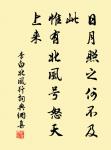 日月照之何不及
此
惟有北風號怒天
上来
李白北風行詞典網書